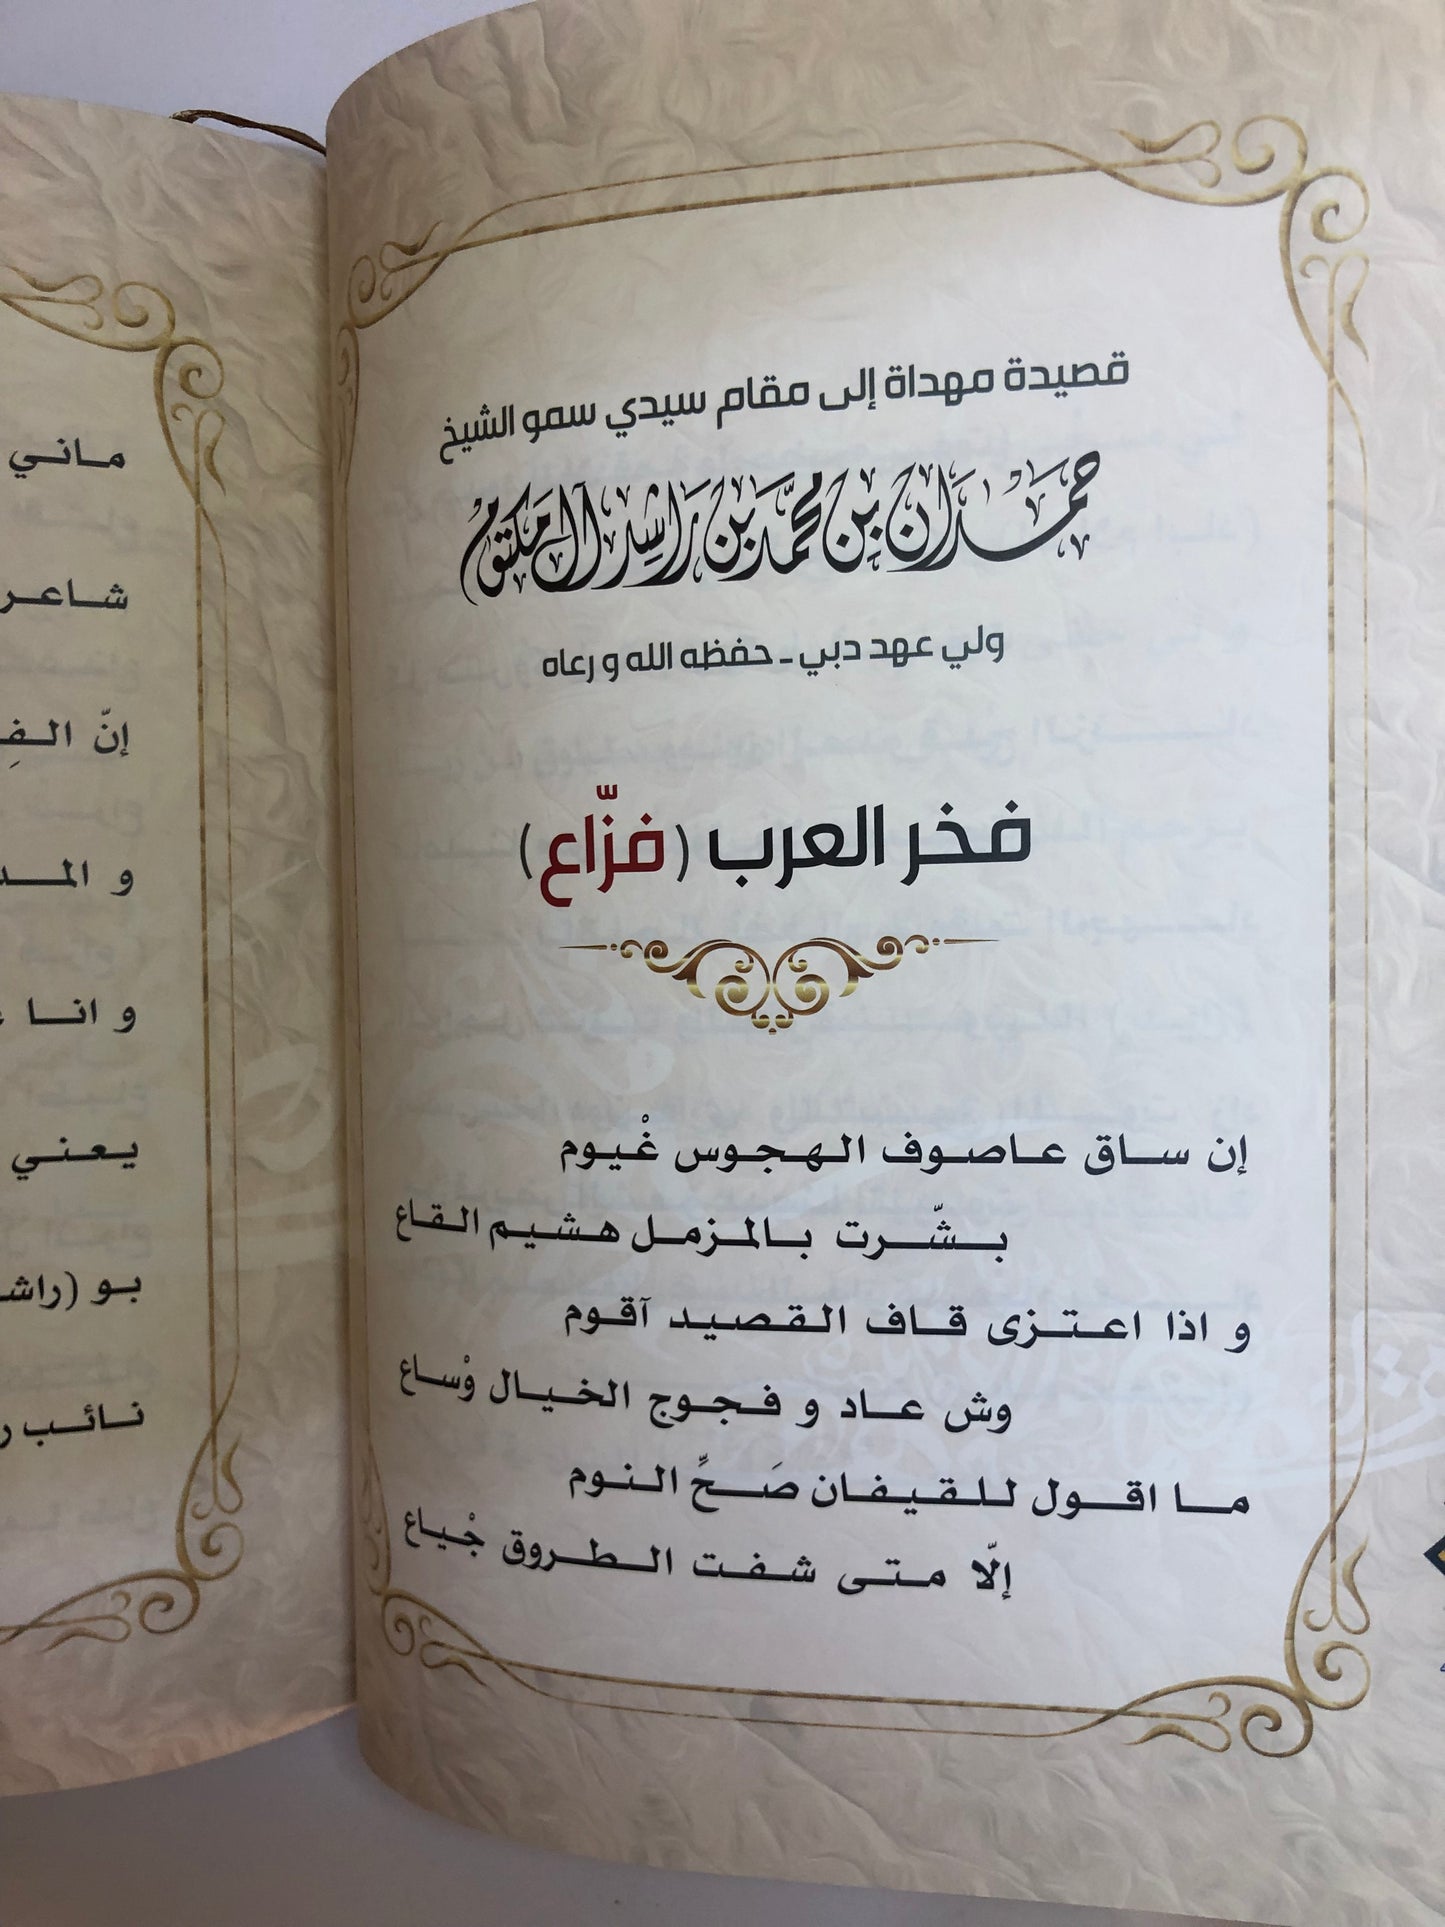 قصيدة مهداة إلى مقام سيدي سمو الشيخ
حمدان بن محمد بن راشد آل مكتوم
ولي عهد دبي ـ حفظه الله و رعاه
فخر العرب (فزّاع)
إن ساق عاصوف الهجوس غْيوم
بشّرت بالمزمل هشيم القاع
و اذا اعتزى قاف القصيد آقوم
وش عاد و فجوج الخيال وْساع
ما اقول للقيفان صَحِّ النوم
إلّا متى شفت الطروق جْياع
ماني
شاعر
إنّ الفِ
و المد
و انا
يعني
بو (راشد
نائب ر